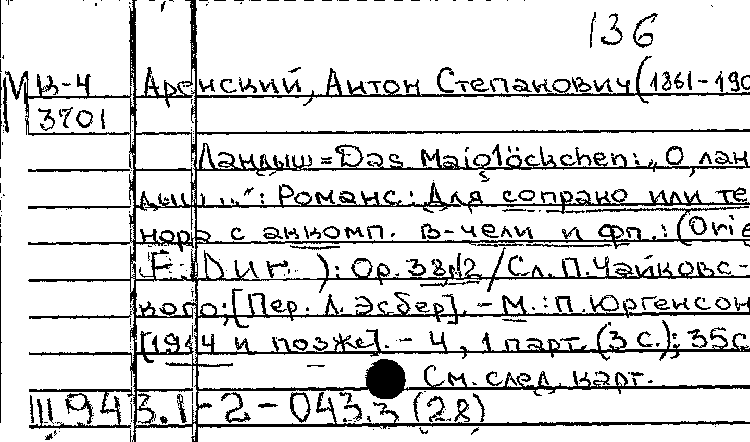 136
М В-4 Аренский, Антон Степанович (1861-190
3701
Ландыш = Das Maiglöckchen: „О, лан
дыш...“: Романс: Для сопрано или те
нора с аккомп. в-чели и фп.: (Orig
E. Dur. ): Op. 38,№2 / Сл. П. Чайковс-
кого; [Пер. Л. Эсбер]. - М.: П. Юргенсон
[1944 и позже]. - 4, 1 парт. (3 с.); 35с
См. след. карт.
Ш 943.1-2-043.3 (28)